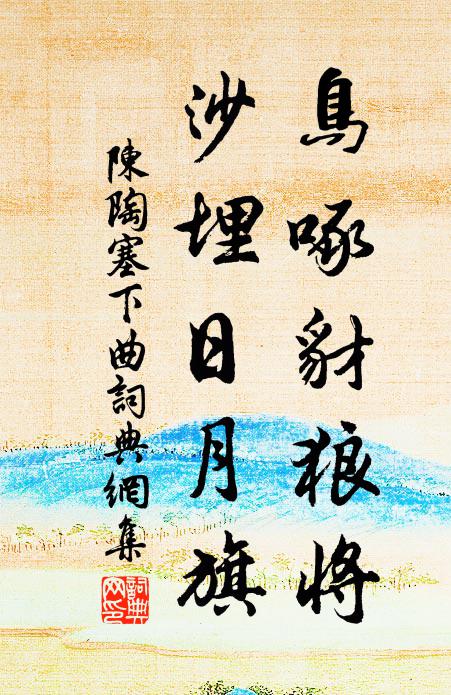 鳥啄豺狼將
沙埋日月旗
陳陶塞下曲詞典網集
詞典
网印